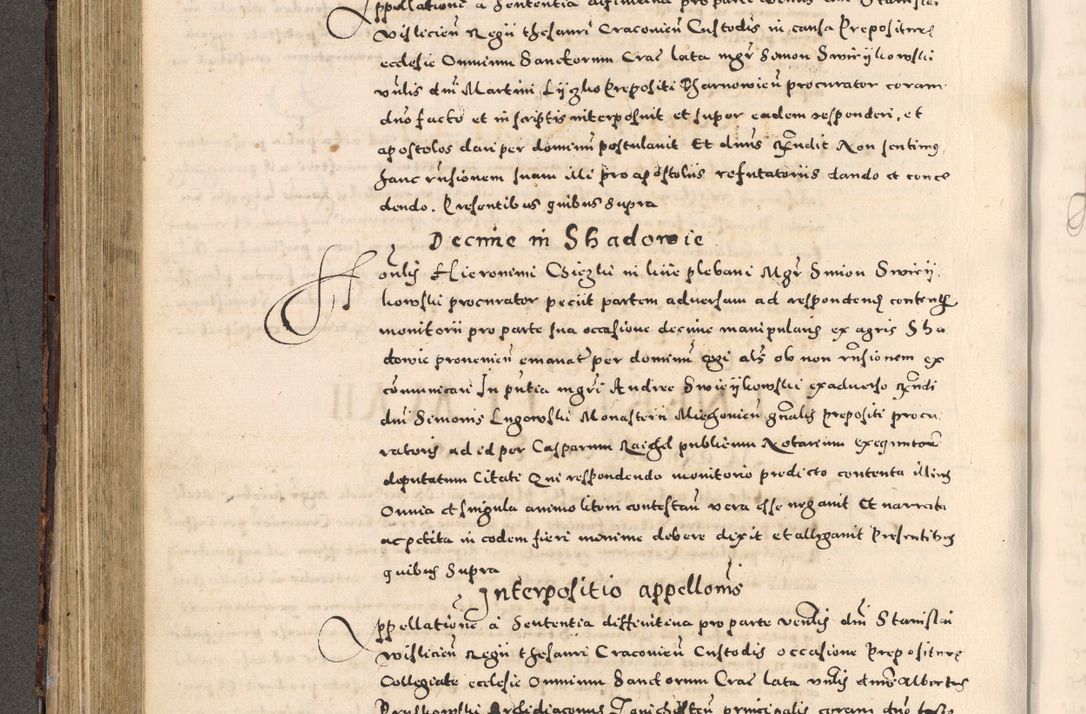 ppellatione a Sententia diffinitiva pro parte Venlis dni Stanislai
Wislicien Regii thesauri Cracovien Custodis in causa Prepositure
ecclesie Omnium Sanctorum Crac lata mgr Simon Swirijkowski
vnlis dni Martini Prepositi Tharnowien procurator coram
dno facto et in scriptis interposuit et super eadem responderi, et
apostolos dari per dominum postulavit Et dnus Rndit Non sentimus
hanc rnsionem suam illi pro apostolis refutatoriis dando et conce
dendo. Presentibus quibus Supra
Decime in Shadowie
onlis Hieronimi in plebani Mgr Simon Swirij
kowski procurator peciit partem adversam ad respondendum contentis
monitorii pro parte sua occasione decime manipularis ex agris Sha
dowie provenien emanat per dominum als ob non rnsionem ex
comunicari In pntia mgri Andree Swirijkowski exadverso Rndi
dni Simonis Lugowski Monasterii Miechovien gnalis prepositi procu
ratoris ad id per Casparum publicum Notarium
deputatum Citati Qui respondendo monitorio predicto contenta illius
Omnia et singula animo litem contestan vera esse negavit Et narrata
ac petita in eodem fieri minime debere dixit et allegavit Presentibus
quibus Supra
Interpositio appellonis
ppellatione a Sententia diffinitiva pro parte venlis dni Stanislai
Wislicien Regii thesauri Cracovien Custodis occasione Prepositure
Collegiate ecclesie Omnium Sanctorum Crac lata vnlis dnus Albertus
Archidiaconus principalis coram dno facto